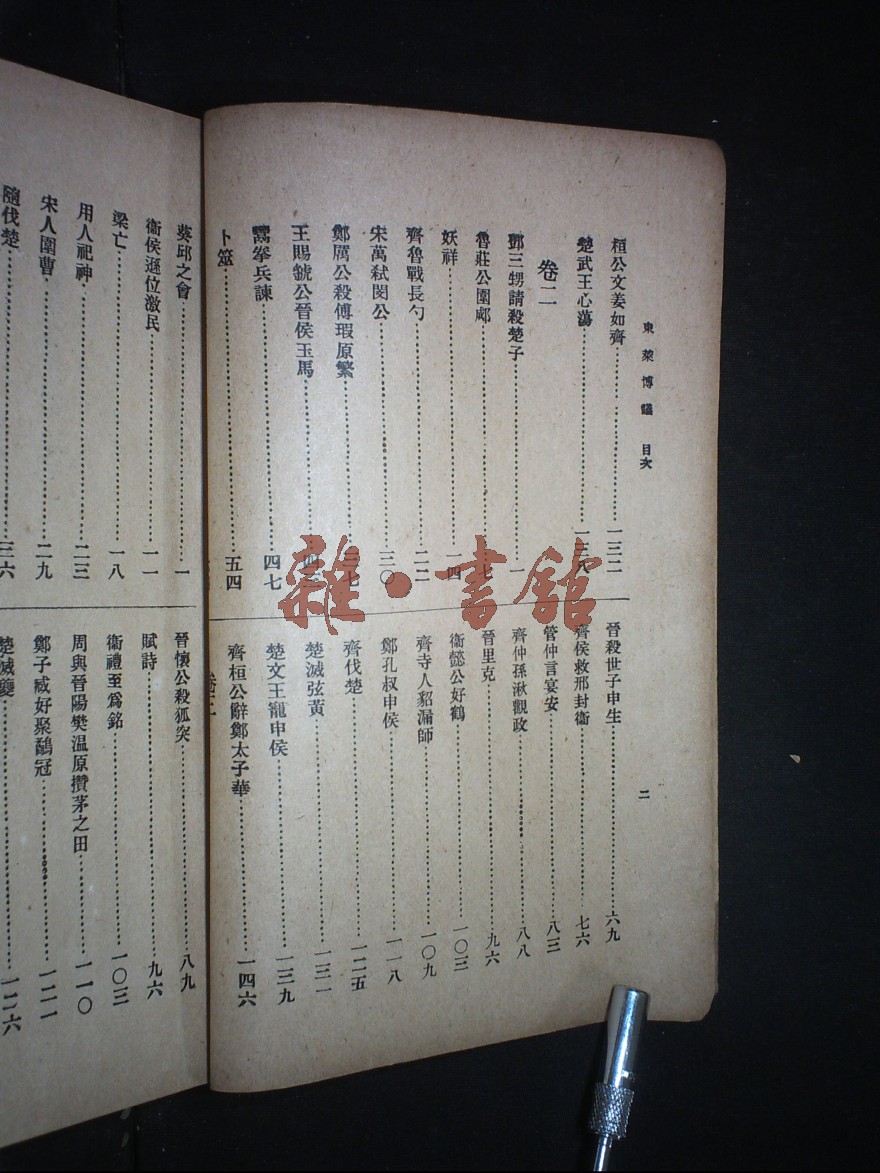 東萊博議 目次
二
桓公文姜如齊 一三二
楚武王心蕩 一三八
卷二
鄧三甥請殺楚子 一
魯莊公圍郕 七
妖祥 一四
齊魯戰長勺 二二
宋萬弒閔公 三〇
鄭厲公殺傅瑕原繁 三七
王賜虢公晉侯玉馬
鬻拳兵諫 四七
卜筮 五四
晉殺世子申生 六九
齊侯救邢封衞 七六
管仲言宴安 八三
齊仲孫湫觀政 八八
晉里克 九六
衞懿公好鶴 一〇三
齊寺人貂漏師 一〇九
鄭孔叔申侯 一一八
齊伐楚 一二五
楚滅弦黃 一三一
楚文王寵申侯 一三九
齊桓公辭鄭太子華 一四六
卷三
葵邱之會 一
衞侯遜位激民 一一
梁亡 一八
用人祀神 二三
宋人圍曹 二九
隨伐楚 三六
晉懷公殺狐突 八九
賦詩 九六
衞禮至爲銘 一〇三
周與晉陽樊温原攢茅之田 一一〇
鄭子臧好聚鷸冠 一二一
楚滅夔 一二六
雜·書館